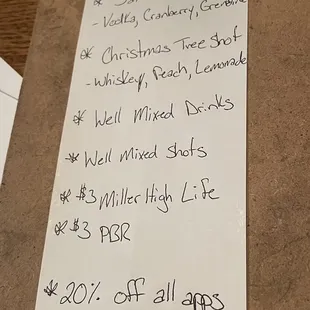 - Vodka, Cranberry, Grenadine
* Christmas Tree Shot
- Whiskey, Peach, Lemonade
* Well Mixed Drinks
* Well Mixed Shots
* $3 Miller High Life
* $3 PBR
* 20% off all apps